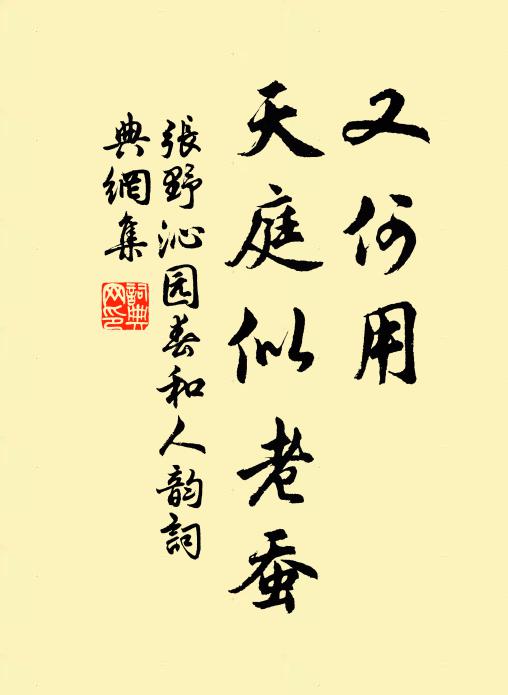 又何用
天庭似老蚕
張野沁园春和人韵詞
典網集
詞典
网印